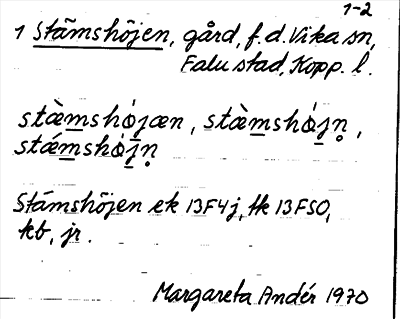 1-2
1 Stämshöjen, gård, f.d. Vika sn,
Falu stad, Kopp. l.
stæ̀mshǿjæn, stæ̀mshǿjn̥,
stǽmshǿjn̥
Stämshöjen ek 13F4j, tk 13FSO,
kb, jr.
Margareta Andér 1970